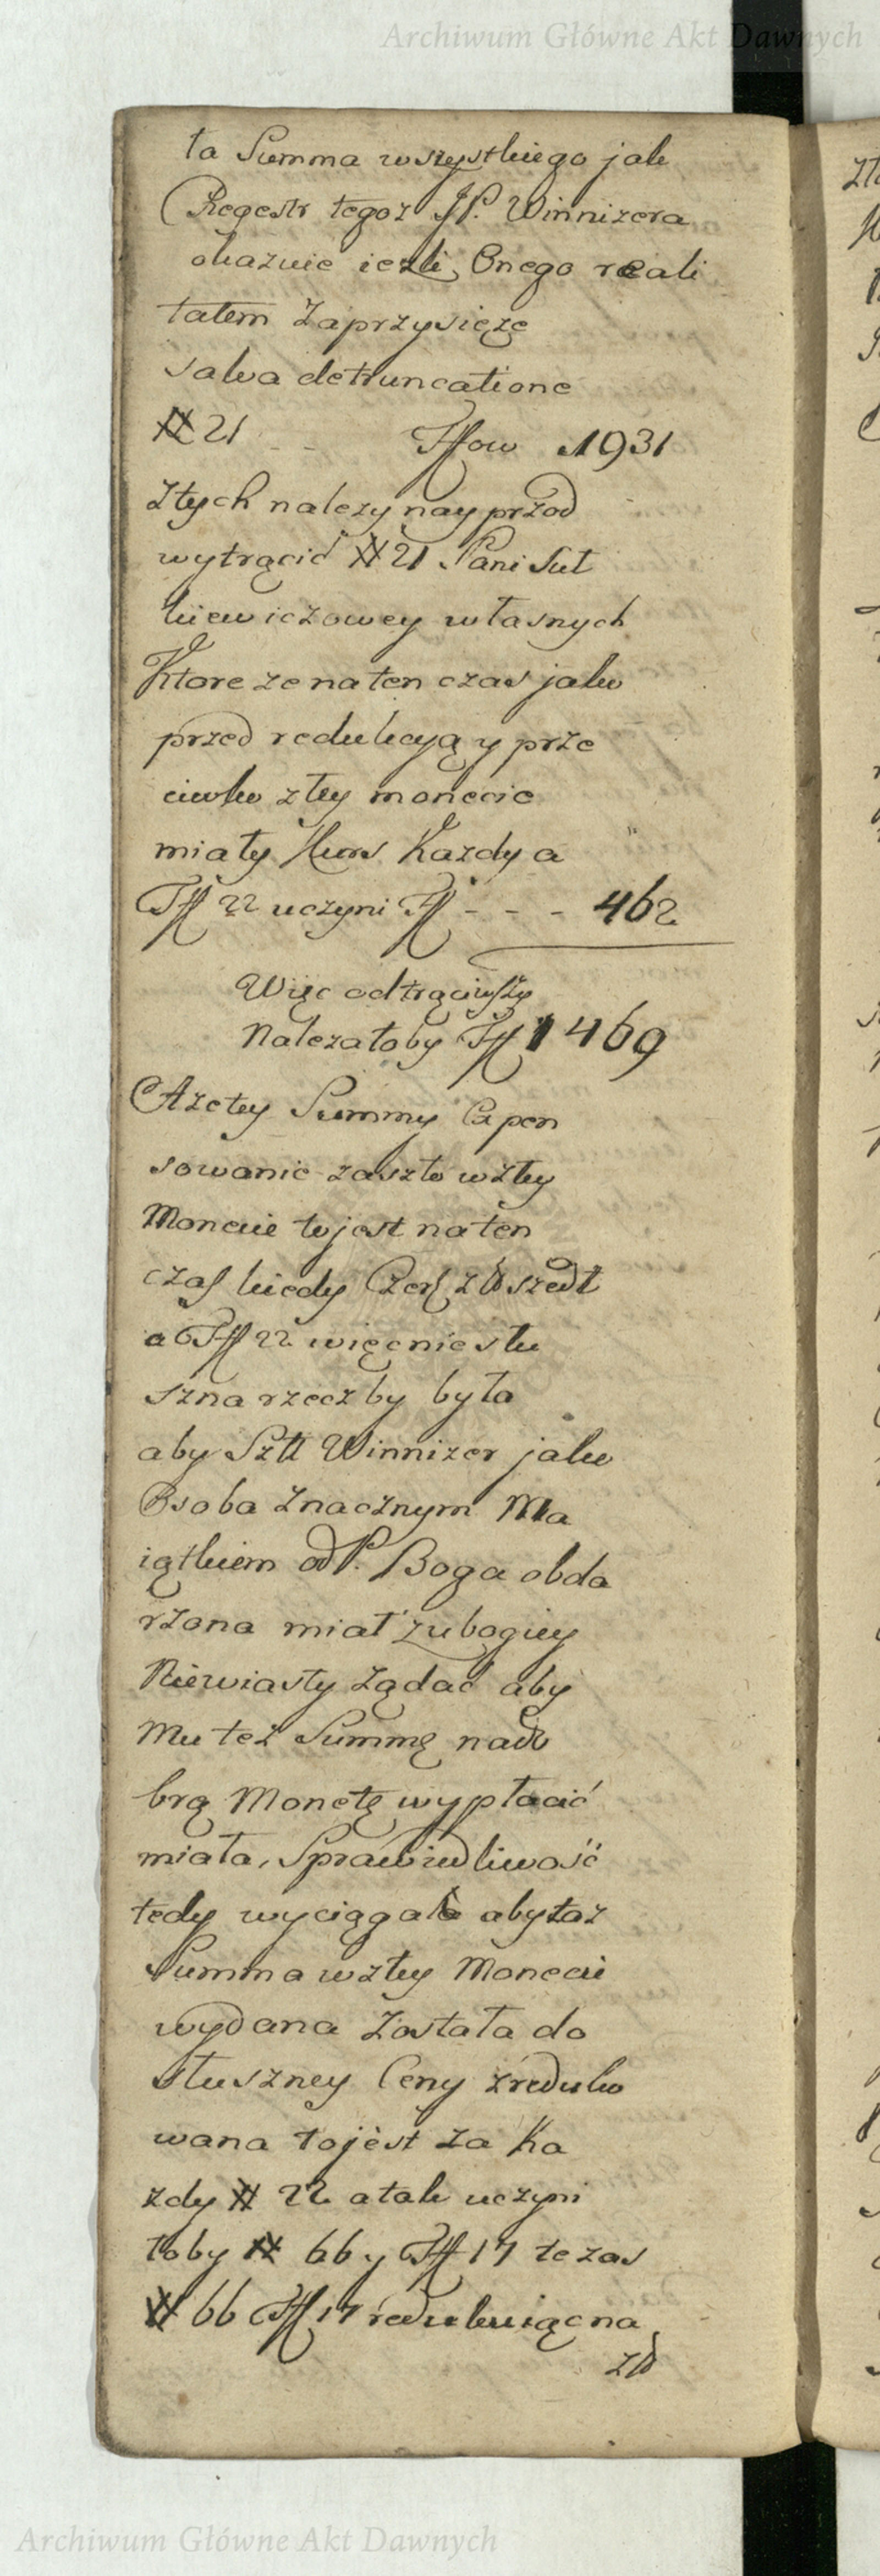 Archiwum Główne Akt Dawnych
ta Summa wszystkiego jak
Regestr tegoz JP. Winnizera
okazuie iezli Onego reali
tatem Zaprzysięze
salva detruncatione
# 21 - - Tffow 1931
Ztych nalezy nayprzod
wytrącić # 21 Pani Sut
kiewiczowey własnych
Ktore ze na ten czas jako
przed redukcyą y prze
ciwko złey monecie
miały Kurs Kazdy a
Tff 22 uczyni Tff - - - 462
Więc odtrąciwszy
Nalezałoby Tff 1469
A ze tey Summy Expen
sowanie zaszło w złey
Monecie to jest na ten
czas kiedy Czer zł szedł
a Tff 22 więc nie słu
szna rzecz by była
aby Szll Winnizer jako
Osoba Znacznym Ma
iątkiem od P. Boga obda
rzona miał z ubogiey
Niewiasty Ządać aby
Mu też Summę na do
brą Monetę wypłacić
miała, Sprawiedliwość
tedy wyciągała aby taz
Summa w złey Monecie
wydana Została do
słuszney Ceny zreduko
wana to jest Za Ka
zdy # 22 a tak uczyni
łoby # 66 y Tff 17 te zas
# 66 Tff 17 redukuiąc na
zł
Archiwum Główne Akt Dawnych